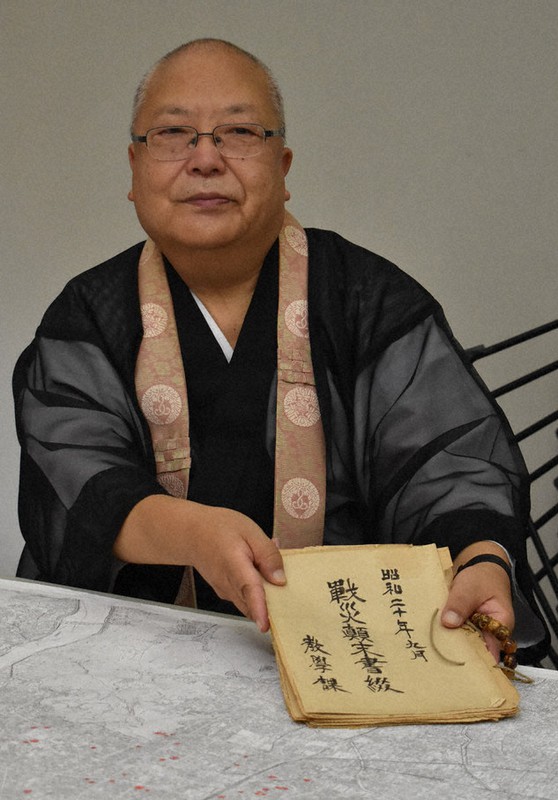 昭和二十年九月
戰災顛末書綴
教學課